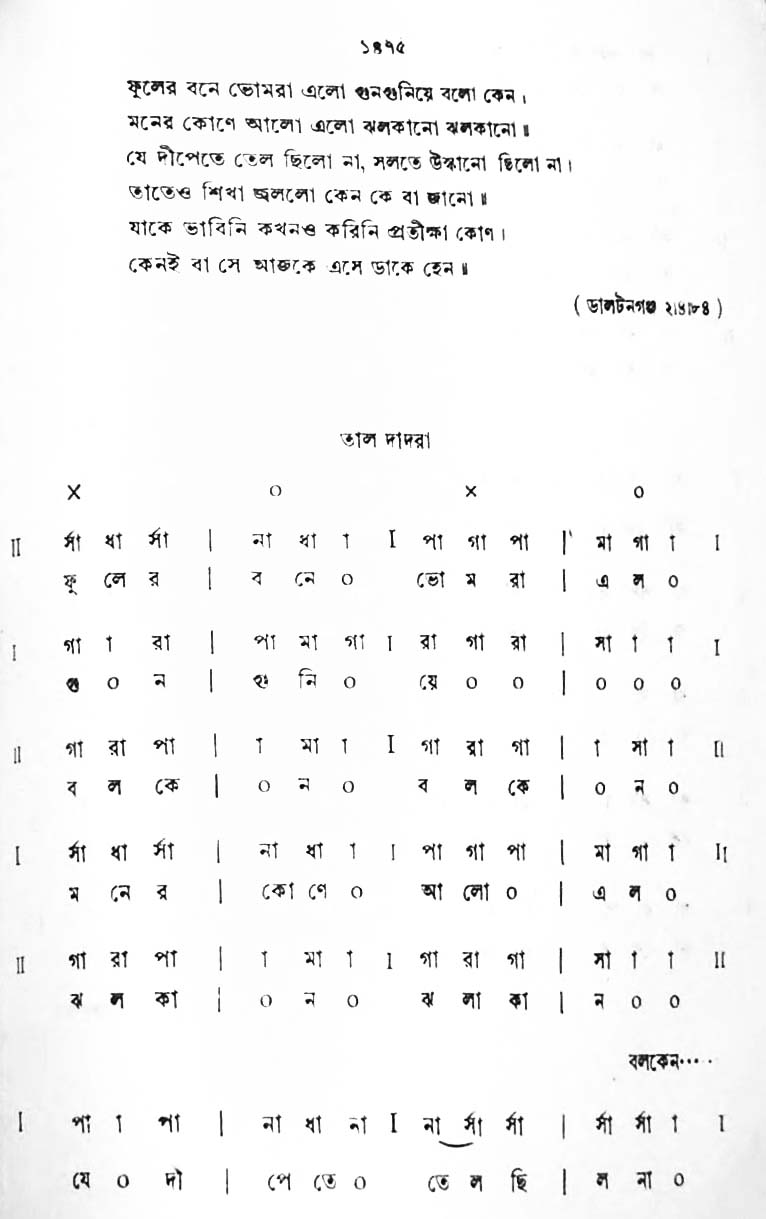 ১৪৭৫
ফুলের বনে ভোমরা এলো গুনগুনিয়ে বলো কেন।
মনের কোণে আলো এলো ঝলকানো ঝলকানো॥
যে দীপেতে তেল ছিলো না, সলতে উস্কানো ছিলো না।
তাতেও শিখা জ্বললো কেন কে বা জানো॥
যাকে ভাবিনি কখনও করিনি প্রতীক্ষা কোণ।
কেনই বা সে আজকে এসে ডাকে হেন॥
( ডালটনগঞ্জ ২।৫।৮৪ )
তাল দাদরা
× ০ × ০
II র্সা ধা র্সা | না ধা া I পা গা পা | মা গা া I
ফু লে র | ব নে ০ ভো ম রা | এ ল ০
I গা া রা | পা মা গা I রা গা রা | সা া া I
গু ০ ন | গু নি ০ য়ে ০ ০ | ০ ০ ০
II গা রা পা | া মা া I গা রা গা | া সা া II
ব ল কে | ০ ন ০ ব ল কে | ০ ন ০
I র্সা ধা র্সা | না ধা া I পা গা পা | মা গা া II
ম নে র | কো ণে ০ আ লো ০ | এ ল ০
II গা রা পা | া মা া I গা রা গা | সা া া II
ঝ ল কা | ০ ন ০ ঝ লা কা | ন ০ ০
বলকেন·····
I পা া পা | না ধা না I না র্সা র্সা | র্সা র্সা া I
যে ০ দী | পে তে ০ তে ল ছি | ল না ০